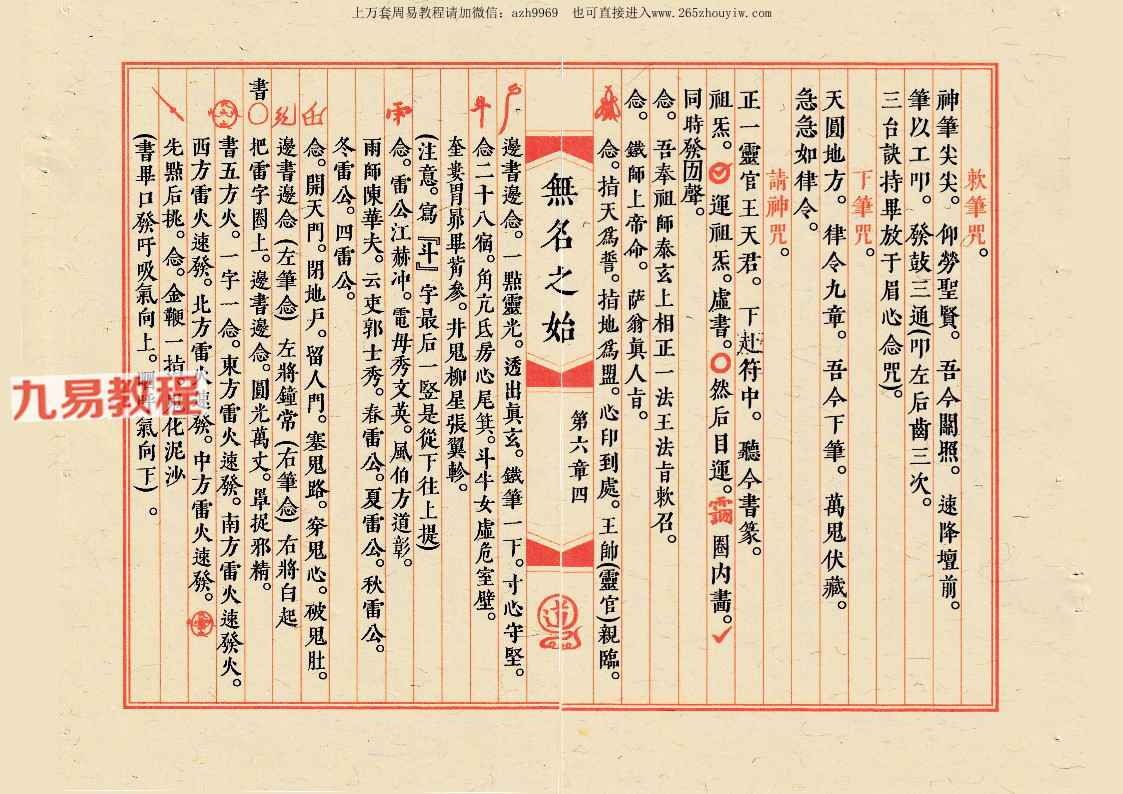 上万套周易教程请加微信：azh9969　也可直接进入www.265zhouyiw.com
敕筆咒。
神筆尖尖。仰勞聖賢。吾今關照。速降壇前。
筆以工叩。發鼓三通(叩左后齒三次。
三台訣持畢放于眉心念咒)。
下筆咒。
天圓地方。律令九章。吾今下筆。萬鬼伏藏。
急急如律令。
請神咒。
正一靈官王天君。下赴符中。聽今書篆。
祖炁。運祖炁。虛書。然后目運。圈内畵。
同時發囙聲。
念。吾奉祖師泰玄上相正一法王法旨敕召。
念。鐵師上帝命。萨翁眞人旨。
念。指天爲誓。指地爲盟。心印到處。王帥(靈官)親臨。
無名之始
第六章四
邊書邊念。一點靈光。透出眞玄。鐵筆一下。寸心守堅。
斗 念二十八宿。角亢氐房心尾箕。斗牛女虛危室壁。
奎婁胃昴畢觜參。井鬼柳星張翼軫。
(注意。寫『斗』字最后一竪是從下往上提)
念。雷公江赫冲。電母秀文英。風伯方道彰。
雨師陳華夫。云吏郭士秀。春雷公。夏雷公。秋雷公。
冬雷公。四雷公。
念。開天門。閉地戶。留人門。塞鬼路。穿鬼心。破鬼肚。
邊書邊念(左筆念)左將鐘常(右筆念)右將白起
書
把雷字圈上。邊書邊念。圓光萬丈。罩捉邪精。
書五方火。一字一念。東方雷火速發。南方雷火速發火。
西方雷火速發。北方雷火速發。中方雷火速發。
先點后挑。念。金鞭一指。化泥沙
(書畢口發吁吸氣向上。氣向下)。
九易教程